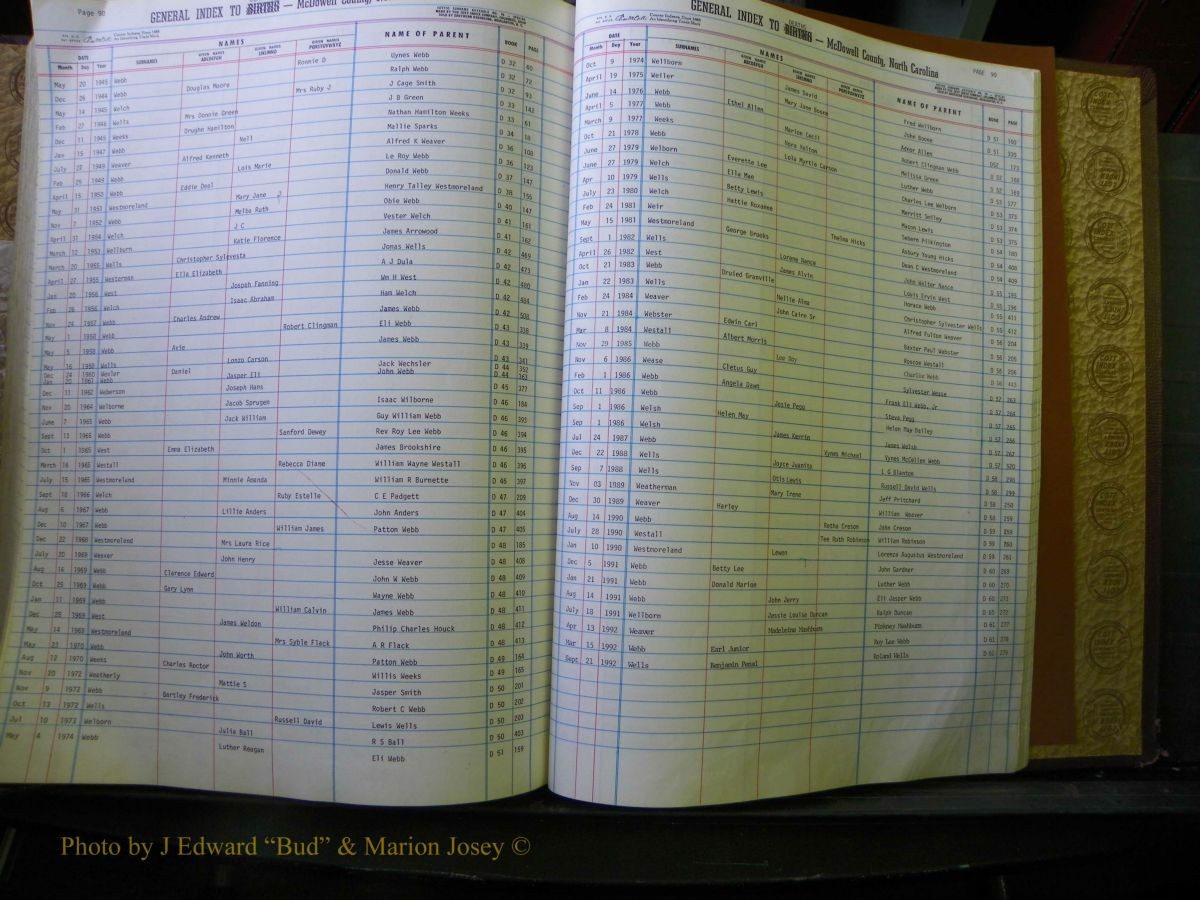 Page 90
GENERAL INDEX TO BIRTHS — McDowell County,
DATE NAMES NAME OF PARENT BOOK PAGE
Month Day Year SURNAMES GIVEN NAMES ABCDEFGH GIVEN NAMES IJKLMNO GIVEN NAMES PQRSTUVWXYZ
May 20 1945 Webb Ronnie D Gynes Webb D 32 40
Dec 26 1944 Webb Douglas Moore Ralph Webb D 32 72
May 14 1945 Welch Mrs Ruby J J Cage Smith D 32 93
Feb 27 1946 Wells Mrs Donnie Green J B Green D 33 142
Dec 11 1946 Weeks Drughn Hamilton Nathan Hamilton Weeks D 33 61
Jan 15 1947 Webb Nell Mallie Sparks D 34 68
July 27 1949 Weaver Alfred Kenneth Alfred K Weaver D 36 108
Feb 25 1949 Webb Lois Marie Le Roy Webb D 36 123
April 15 1950 Webb Eddie Deal Donald Webb D 37 147
May 31 1951 Westmoreland Mary Jane Henry Talley Westmoreland D 38 155
Nov 7 1952 Webb Melba Ruth Obie Webb D 40 147
April 31 1954 Welch J C Vester Welch D 41 161
March 12 1953 Wellburn Katie Florence James Arrowood D 41 162
March 20 1955 Wells Christopher Sylvesta Jonas Wells D 42 469
April 27 1955 Westerman Ella Elizabeth A J Dula D 42 473
Jan 20 1956 West Joseph Fanning Wm H West D 42 480
Feb 26 1956 Welch Isaac Abraham Ham Welch D 42 484
Nov 24 1957 Webb Charles Andrew James Webb D 42 508
May 1 1958 Webb Robert Clingman Eli Webb D 43 338
May 5 1958 Webb Avie James Webb D 43 339
May 16 1950 Wells Lonzo Carson D 43 341
Dec 24 1960 Wexler Daniel Jack Wechsler D 44 352
Jan 20 1961 Webb Jasper Eli John Webb D 44 363
Dec 11 1962 Weberson Joseph Hans D 45 377
Nov 20 1964 Welborne Jacob Sprugen Isaac Wilborne D 46 184
June 7 1965 Webb Jack William Guy William Webb D 46 393
Sept 13 1965 Webb Sanford Dewey Rev Roy Lee Webb D 46 394
Oct 1 1965 West Emma Elizabeth James Brookshire D 46 395
March 16 1966 Westall Rebecca Diane William Wayne Westall D 46 396
July 15 1965 Westmoreland Minnie Amanda William R Burnette D 46 397
Sept 18 1966 Welch Ruby Estelle C E Padgett D 47 209
Aug 6 1967 Webb Lillie Anders John Anders D 47 404
Dec 10 1967 Webb William James Patton Webb D 47 405
Dec 22 1968 Westmoreland Mrs Laura Rice D 48 185
July 20 1969 Weaver John Henry Jesse Weaver D 48 408
Aug 14 1969 Webb Clarence Edward John W Webb D 48 409
Oct 25 1969 Webb Gary Lynn Wayne Webb D 48 410
Jan 11 1969 Webb William Calvin James Webb D 48 411
Dec 28 1969 West James Weldon Philip Charles Houck D 48 412
May 14 1969 Westmoreland Mrs Syble Flack A R Flack D 48 413
May 23 1970 Webb John Worth Patton Webb D 49 164
Aug 12 1970 Weeks Charles Rector Willis Weeks D 49 165
Nov 20 1972 Weatherly Mattie S Jasper Smith D 50 201
Nov 9 1972 Webb Bartley Frederick Robert C Webb D 50 202
Oct 13 1972 Wells Russell David Lewis Wells D 50 203
Jul 10 1973 Welborn Julie Ball R S Ball D 50 403
May 4 1974 Webb Luther Reagan Eli Webb D 51 159
GENERAL INDEX TO BIRTHS DEATHS — McDowell County, North Carolina
PAGE 90
DATE NAMES NAME OF PARENT BOOK PAGE
Month Day Year SURNAMES GIVEN NAMES ABCDEFGH GIVEN NAMES IJKLMNO GIVEN NAMES PQRSTUVWXYZ
Oct 9 1974 Wellborn James David Fred Wellborn D 51 160
April 19 1975 Weller Mary Jane Boone John Boone D 51 330
June 14 1976 Webb Ethel Allen Adnor Allen D52 173
April 5 1977 Webb Marion Cecil Robert Clingman Webb D 52 168
March 9 1977 Weeks Nora Yelton Melissa Greene D 52 169
Oct 21 1978 Webb Lola Myrtle Carson Luther Webb D 53 377
June 27 1979 Welborn Everette Lee Charles Lee Welborn D 53 374
June 27 1979 Welch Ella Mae Merritt Smiley D 53 375
Apr 10 1979 Wells Betty Lewis Macon Lewis
July 23 1980 Welch Hattie Roxanne Sebern Pilkington D 54 180
Feb 24 1981 Weir Thelma Hicks Asbury Young Hicks D 54 408
May 15 1981 Westmoreland George Brooks Dean C Westmoreland D 54 409
Sept 1 1982 Wells Lorene Nance John Walter Nance D 55 195
April 26 1982 West James Alvin Louis Ervin West D 55 196
Oct 21 1983 Webb Druied Granville Horace Webb D 55 411
Jan 22 1983 Wells Nellie Alma Christopher Sylvester Wells D 55 412
Feb 24 1984 Weaver John Caire Sr Alfred Fulton Weaver D 56 204
Nov 21 1984 Webster Edwin Carl Baxter Paul Webster D 56 205
Mar 8 1984 Westall Albert Morris Roscoe Westall D 56 206
Nov 29 1985 Webb Lee Roy Charlie Webb D 56 443
Nov 6 1986 Wease Cletus Guy Sylvester Wease D 57 263
Feb 1 1986 Webb Angela Dawn Frank Eli Webb, Jr D 57 264
Oct 11 1986 Webb Josie Pegg Steve Pegg D 57 265
Sep 1 1986 Welsh Helen May Helen May Dailey D 57 266
Sep 1 1986 Welsh James Kerrin James Welsh D 57 267
Jul 24 1987 Webb Vynes Michael Vynes McCullen Webb D 57 520
Dec 22 1988 Wells Joyce Juanita L G Blanton D 58 298
Sep 7 1988 Wells Otis Lewis Russell David Wells D 58 299
Nov 03 1989 Weatherman Mary Irene Jeff Pritchard D 58 250
Dec 30 1989 Weaver Harley William Weaver D 59 259
Aug 14 1990 Webb Retha Creson John Creson D 59 259
July 28 1990 Westall Tee Ruth Robinson William Robinson D 59 260
Jan 10 1990 Westmoreland Lewen Lorenzo Augustus Westmoreland D 59 261
Dec 5 1991 Webb Betty Lee John Gardner D 60 269
Jan 21 1991 Webb Donald Marion Luther Webb D 60 270
Aug 14 1991 Webb John Jerry Eli Jasper Webb D 60 271
July 18 1991 Wellborn Jessie Louise Duncan Ralph Duncan D 60 272
Apr 13 1992 Weaver Madeleine Mashburn Pinkney Mashburn D 61 277
Mar 15 1992 Webb Earl Junior Roy Lee Webb D 61 278
Sept 21 1992 Wells Benjamin Penal Roland Wells D 61 279
Photo by J Edward “Bud” & Marion Josey ©